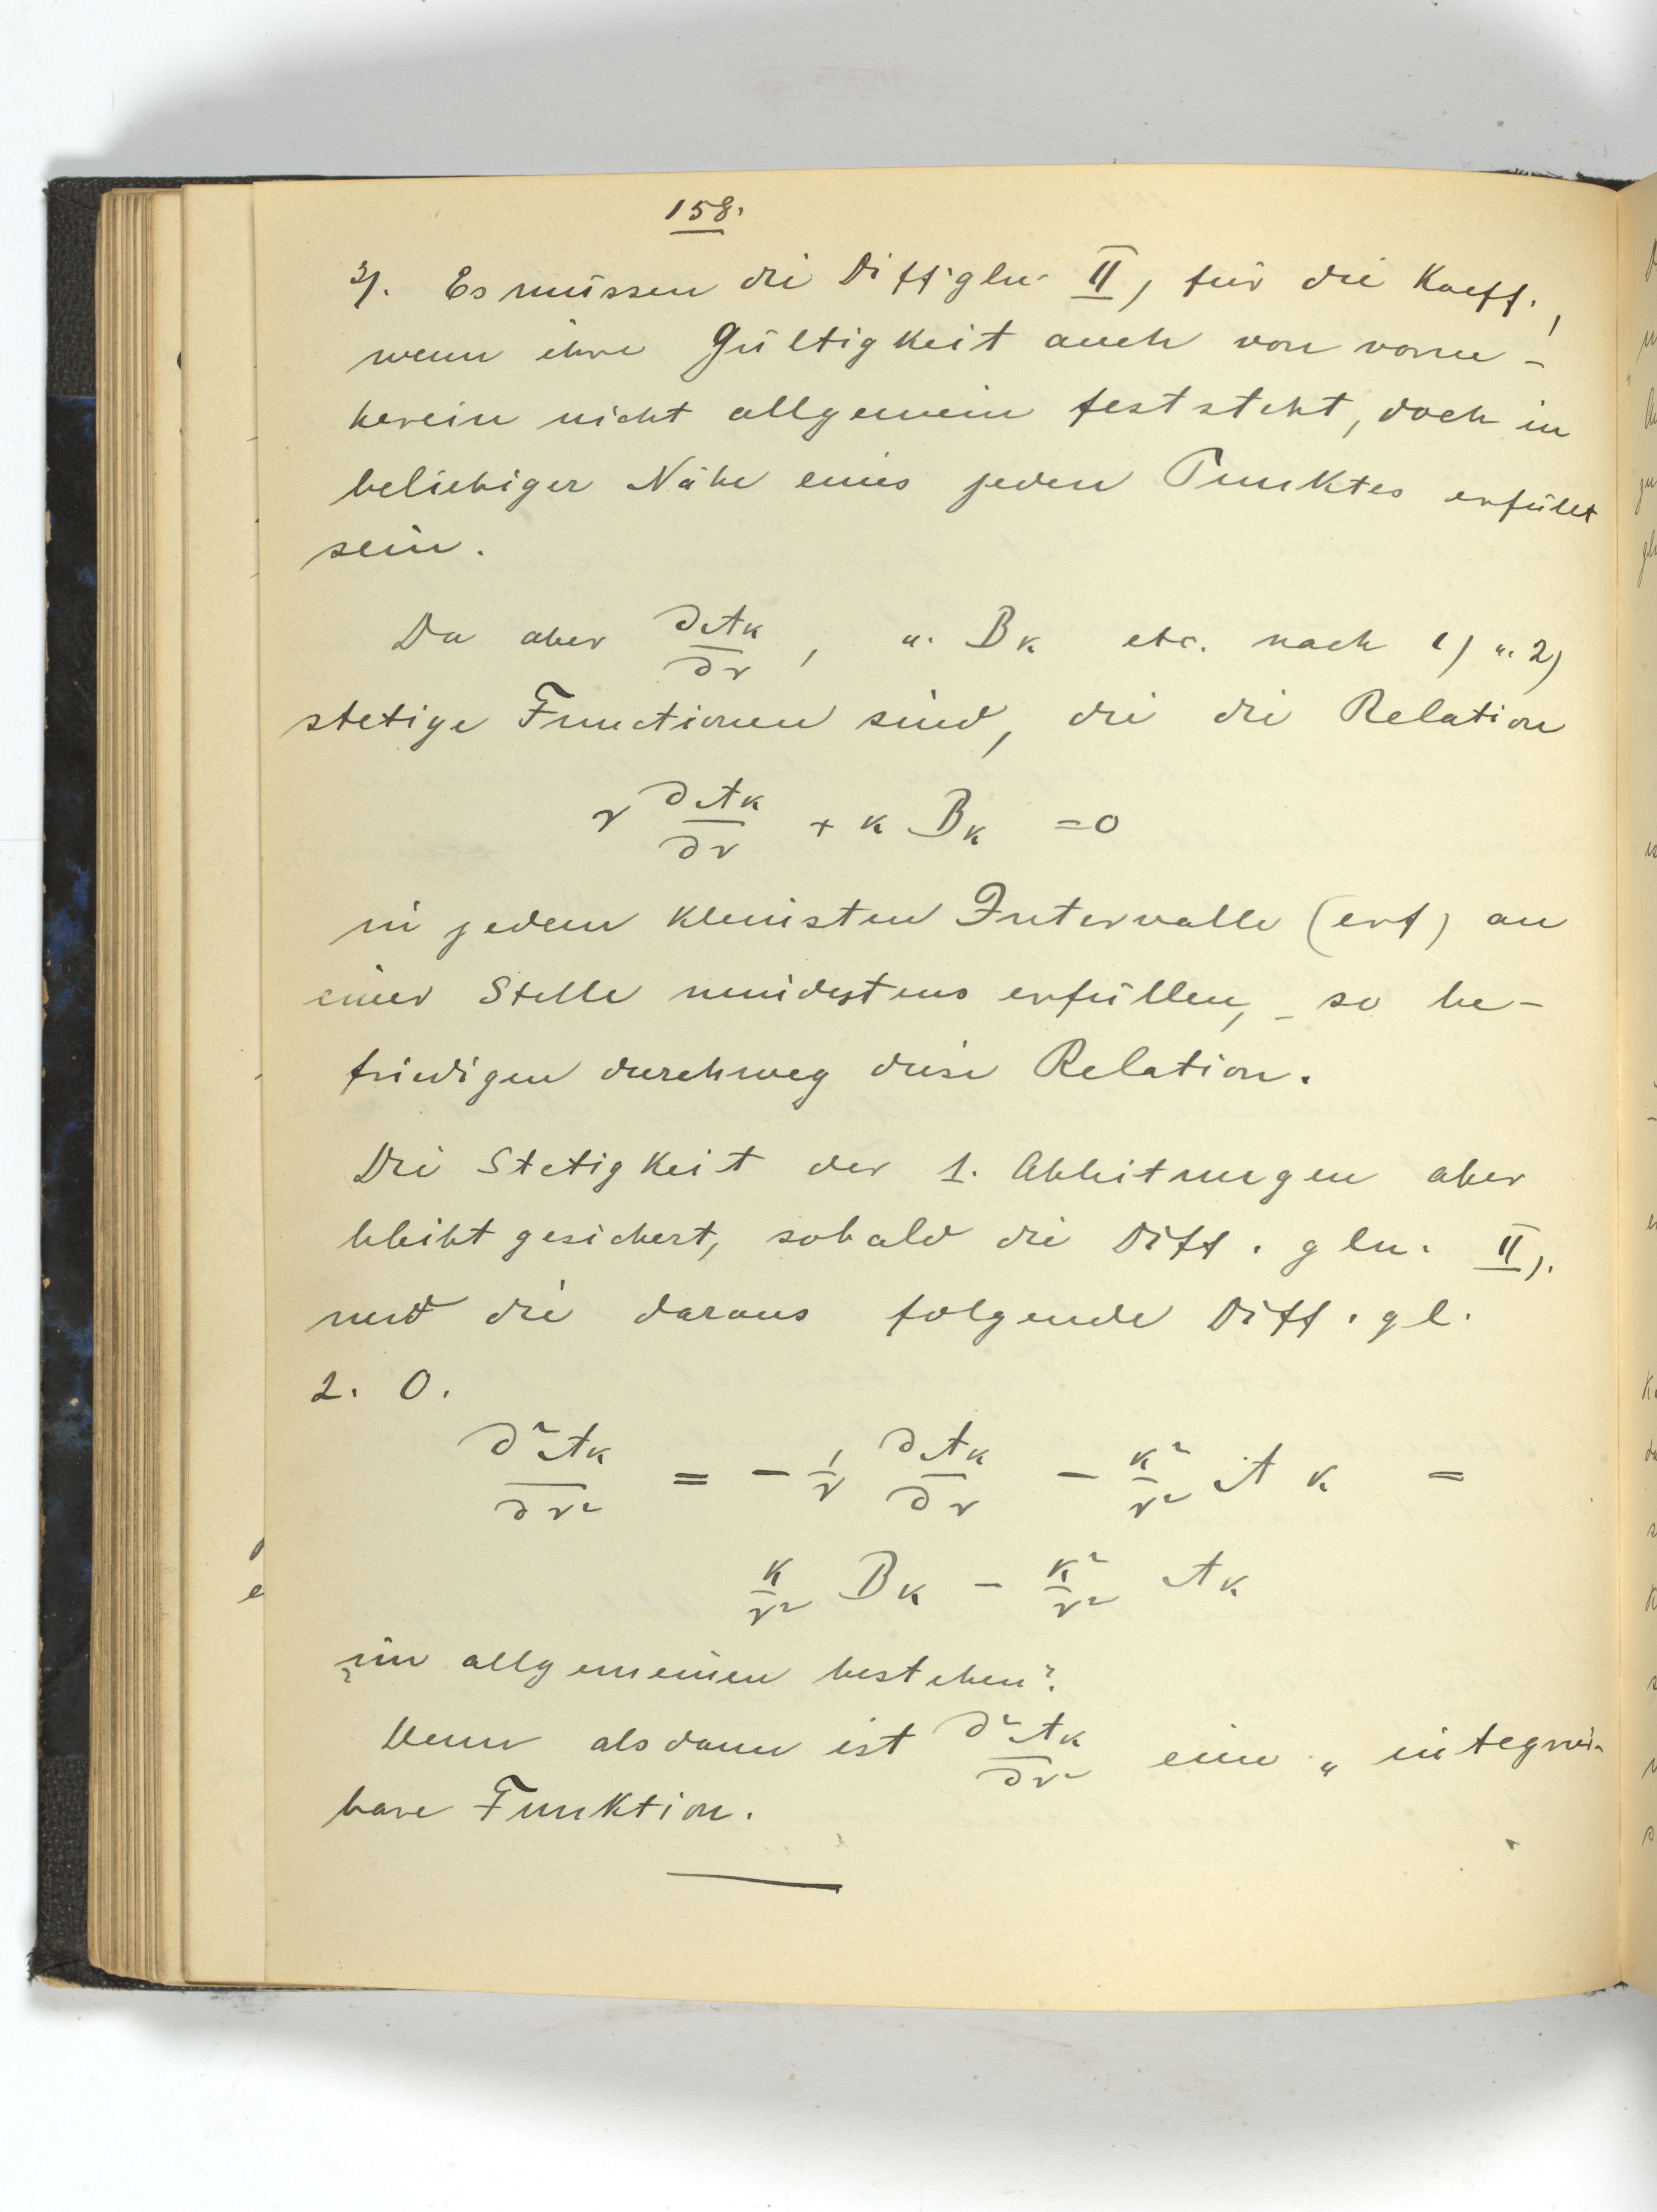 158.
3). Es müssen die Diffgln. II, für die Koeff.,
wenn ihre Gültigkeit auch von vorne-
herein nicht allgemein feststeht, doch in
beliebiger Nähe eines jeden Punktes erfüllt
sein.
Da aber ∂A_k/∂r, u. B_k etc. nach 1) u. 2)
stetige Functionen sind, die die Relation
r ∂A_k/∂r + k B_k = 0
in jedem kleinsten Intervalle (erf) an
einer Stelle mindestens erfüllen, so be-
friedigen durchweg diese Relation.
Die Stetigkeit der 1. Ableitungen aber
bleibt gesichert, sobald die Diff. gln. II).
und die daraus folgende Diff. gl.
2. O.
∂²A_k/∂r² = - 1/r ∂A_k/∂r - k²/r² A_k =
k/r² B_k - k²/r² A_k
im allgemeinen bestehen?
Denn alsdann ist ∂²A_k/∂r² eine " integrir-
bare Funktion.